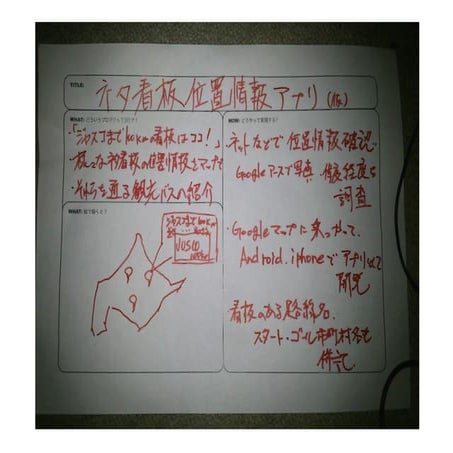 TITLE:
ネタ看板位置情報アプリ(仮)
WHAT: どういうプログラムって?
・「ジャスコまで10km看板はココ!」
な看板の位置情報をマップで
それらを通る観光バスへ紹介
WHAT: 絵で描くと?
ジャスコまで
JUSCO
HOW: どうやって実現する?
・ネットなどで位置情報確認
Googleアースで写真、緯度経度を
調査
・Googleマップに乗っかって、
Android.iphoneでアプリとして
開発
看板のある路線名、
スタート・ゴール市町村名も
併記